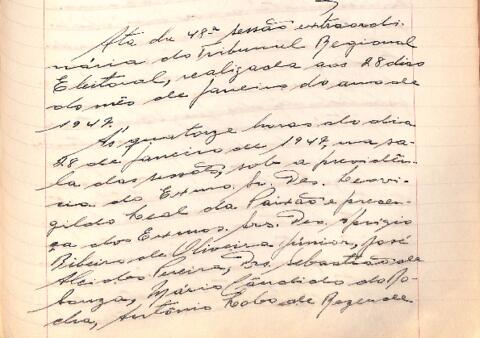 Ata da 48ª sessão extraordi-
nária do Tribunal Regional
Eleitoral, realizada aos 28 dias
do mês de Janeiro do ano de
1947.
Ás quatorze horas do dia
28 de Janeiro de 1947, na sa-
la das sessões, sob a presidên-
cia do Exmo. Sr. Des. Leovi-
gildo Leal da Paixão e presen-
ça dos Exmos. Srs. Des.
Ribeiro de Oliveira Júnior, José
Alcides Pereira, Drs. Sebastião de
Souza, Mário Candido da Ro-
cha, Antônio Lobo de Rezende